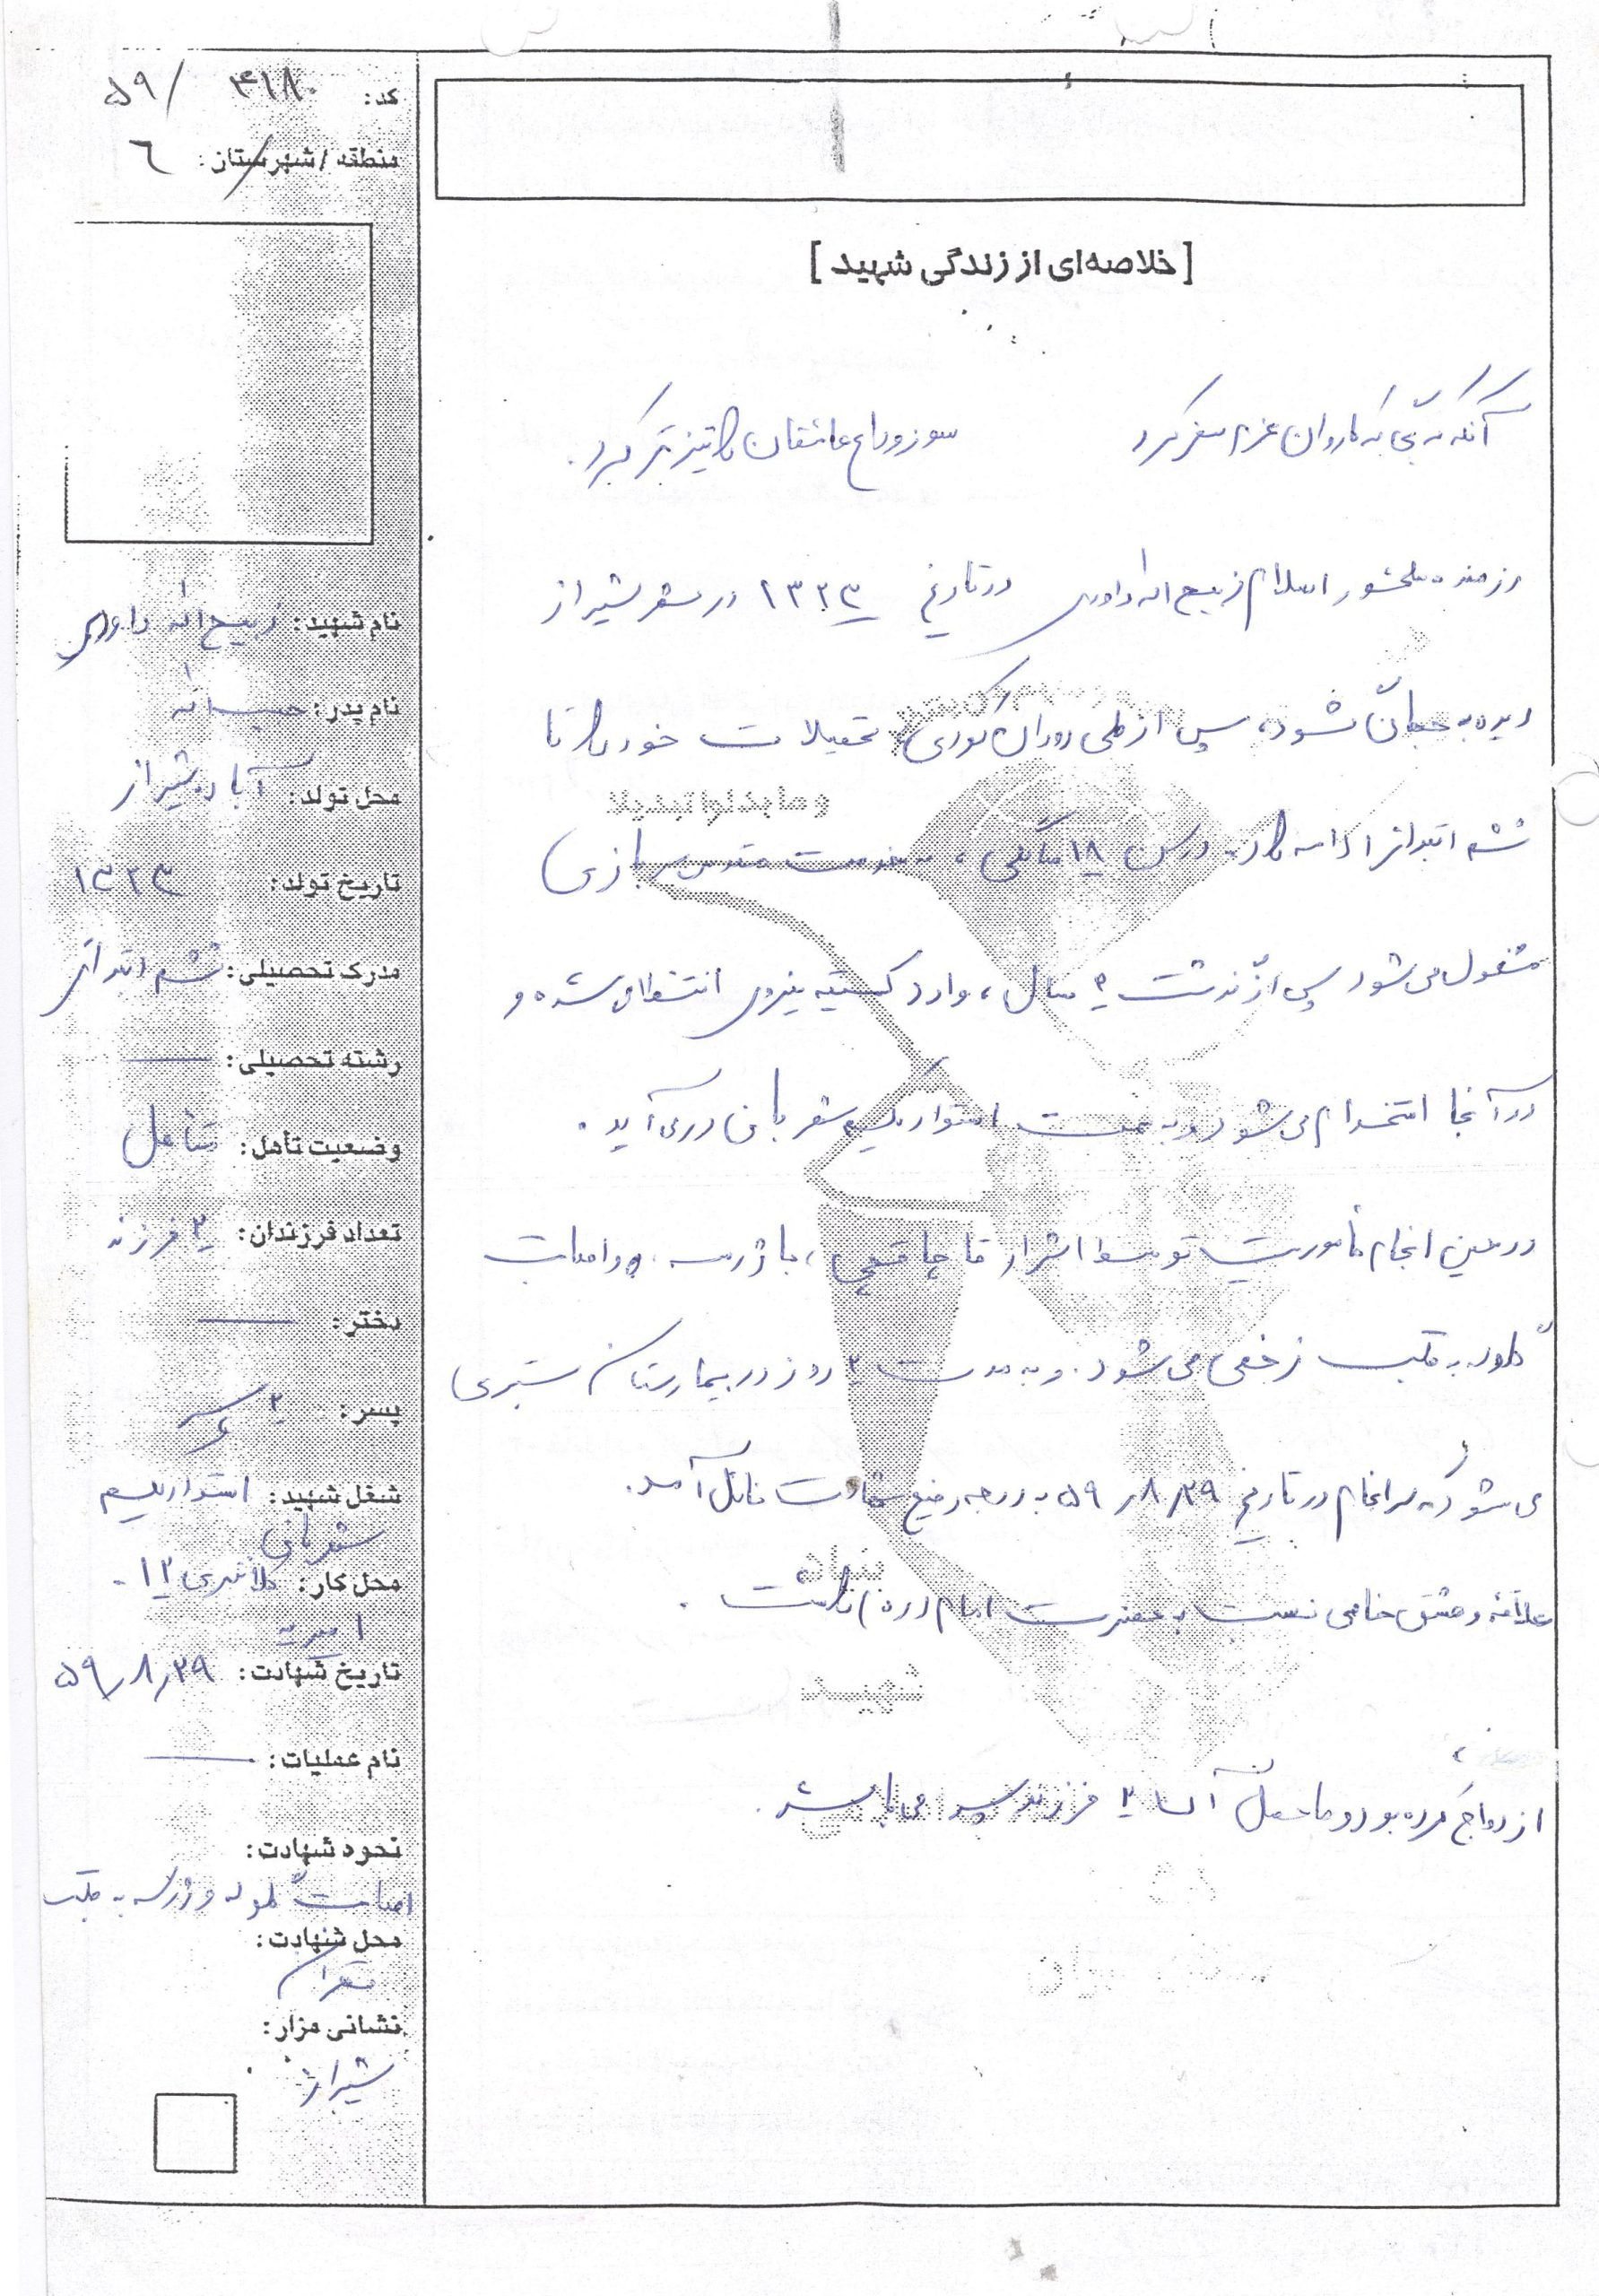 کد: ۴۱۸۰ / ۵۹
منطقه / شهرستان: ٦
[خلاصه‌ای از زندگی شهید]
آنکه به پی کاروان عزم سفر کرد
سوز وداع عاشقان را تیزتر کرد.
رزمنده سلحشور اسلام ذبیح اله داودی در تاریخ ۱۳۲۳ در شهر شیراز
دیده به جهان گشود، پس از طی دوران کودکی، تحصیلات خود را تا
ششم ابتدائی ادامه داد. در سن ۱۸ سالگی، به خدمت مقدس سربازی
مشغول می شود پس از گذشت ۲ سال، وارد کمیته نیروی انتظامی شده و
در آنجا استخدام می شود و به سمت استوار یکم شهربانی در می آید.
در حین انجام مأموریت توسط اشرار قاچاقچی، با ترکش و اصابت
گلوله به قلب زخمی می شود. و به مدت ۲ روز در بیمارستان بستری
می شود که سرانجام در تاریخ ۵۹٫۸٫۲۹ به درجه رفیع شهادت نائل آمد.
علاقه و عشق خاصی نسبت به حضرت امام (ره) داشت.
ازدواج کرده بود و ماحصل آن ۲ فرزند پسر می باشد.
نام شهید: ذبیح اله داودی
نام پدر: حبیب اله
محل تولد: آباده شیراز
تاریخ تولد: ۱۳۲۳
مدرک تحصیلی: ششم ابتدائی
رشته تحصیلی: ——
وضعیت تأهل: متأهل
تعداد فرزندان: ۲ فرزند
دختر: ——
پسر: ۲ پسر
شغل شهید: استوار یکم
شهربانی
محل کار: کلانتری ۱۲ -
امیریه
تاریخ شهادت: ۵۹٫۸٫۲۹
نام عملیات: ——
نحوه شهادت:
اصابت گلوله و ترکش به قلب
محل شهادت:
تهران
نشانی مزار:
شیراز
وما بدلوا تبدیلا
بنیاد
شهید